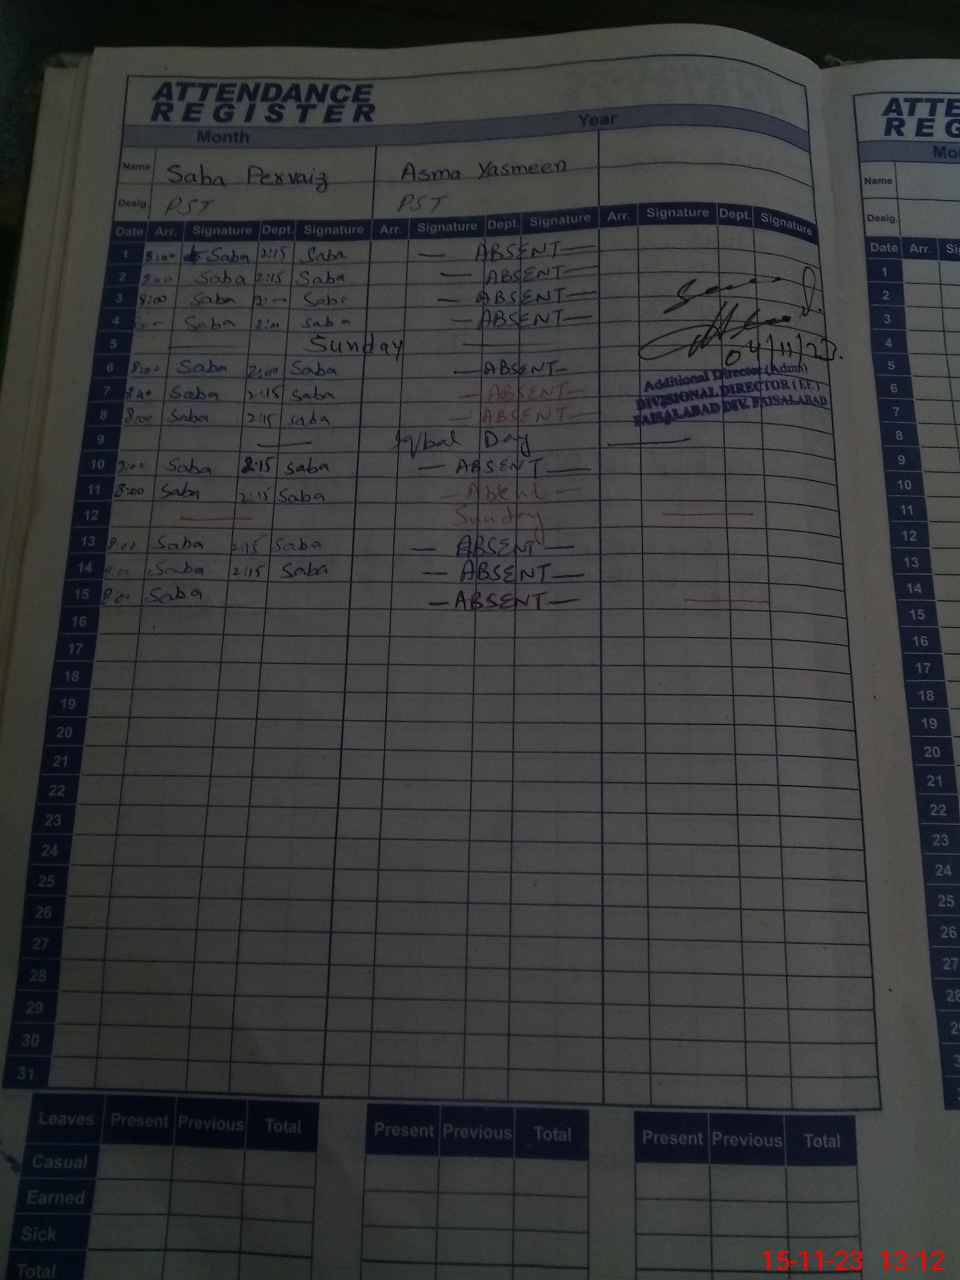 ATTENDANCE
REGISTER
Month Year
Name Saba Pervaiz Asma Yasmeen
Desig. PST PST
Date Arr. Signature Dept. Signature Arr. Signature Dept. Signature Arr. Signature Dept. Signature
1 8:00 Saba 2:15 Saba — ABSENT —
2 8:00 Saba 2:15 Saba — ABSENT —
3 8:00 Saba Saba — ABSENT —
4 Saba Saba — ABSENT —
5 Sunday
04/11/23.
6 8:00 Saba 2:00 Saba — ABSENT —
Additional Director (Admn)
7 Saba 2:15 Saba — ABSENT —
DIVISIONAL DIRECTOR (E.E)
8 8:00 Saba 2:15 Saba — ABSENT —
FAISALABAD DIV. FAISALABAD
9 — Iqbal Day —
10 8:00 Saba 2:15 Saba — ABSENT —
11 8:00 Saba 2:15 Saba — Absent —
12 — Sunday —
13 8:00 Saba 2:15 Saba — ABSENT —
14 8:00 Saba 2:15 Saba — ABSENT —
15 8:00 Saba — ABSENT —
16
17
18
19
20
21
22
23
24
25
26
27
28
29
30
31
Leaves Present Previous Total Present Previous Total Present Previous Total
Casual
Earned
Sick
Total
ATTE
REG
Mo
Name
Desig.
Date Arr.
1
2
3
4
5
6
7
8
9
10
11
12
13
14
15
16
17
18
19
20
21
22
23
24
25
26
27
28
15-11-23 13:12